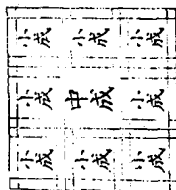 小成 小成 小成
小成 中成 小成
小成 小成 小成